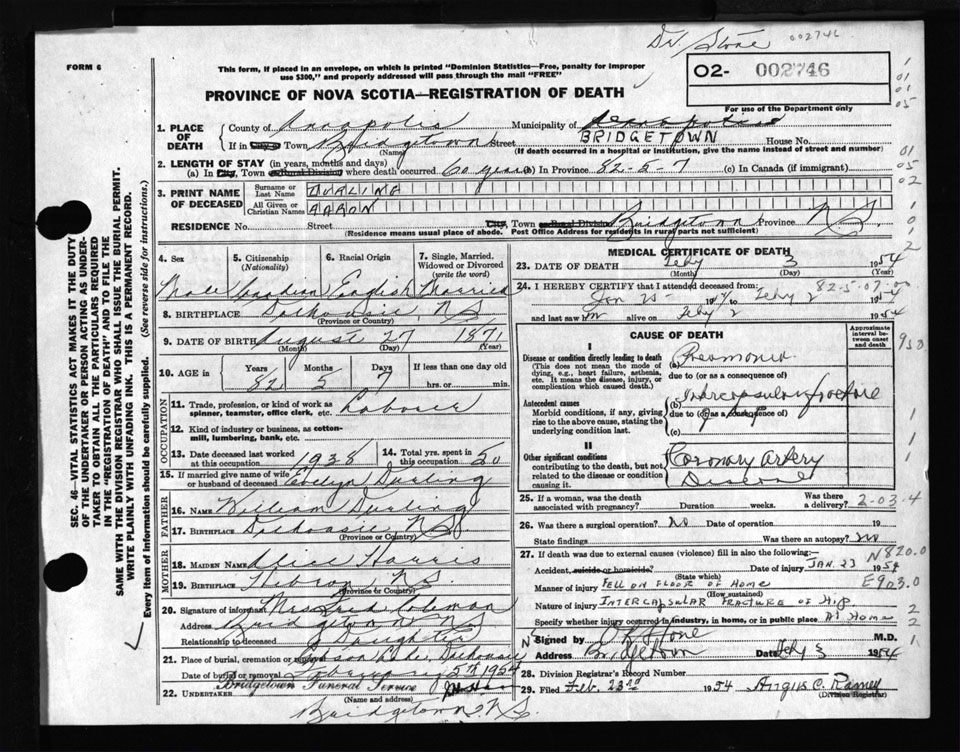 Dr. Stone 002746
FORM 6
This form, if placed in an envelope, on which is printed "Dominion Statistics—Free, penalty for improper
use $300," and properly addressed will pass through the mail "FREE"
02- 002746
PROVINCE OF NOVA SCOTIA—REGISTRATION OF DEATH
For use of the Department only
1. PLACE OF DEATH
County of Annapolis Municipality of Annapolis
If in City or Town Bridgetown Street BRIDGETOWN House No.
(Name) (If death occurred in a hospital or institution, give name instead of street and number)
2. LENGTH OF STAY (in years, months and days)
(a) In City, Town or Rural Division where death occurred 60 years (b) In Province 82-5-7 (c) In Canada (if immigrant)
3. PRINT NAME OF DECEASED
Surname or Last Name DURLING
All Given or Christian Names AARON
RESIDENCE No. Street City, Town or Rural Division Bridgetown Province N.S.
(Residence means usual place of abode. Post Office Address for residents in rural parts not sufficient)
4. Sex
Male
5. Citizenship (Nationality)
Canadian
6. Racial Origin
English
7. Single, Married, Widowed or Divorced (write the word)
Married
8. BIRTHPLACE Dalhousie, N.S.
(Province or Country)
9. DATE OF BIRTH August 27 1871
(Month) (Day) (Year)
10. AGE in Years Months Days If less than one day old
82 5 7 hrs. or min.
OCCUPATION
11. Trade, profession, or kind of work as Laborer
spinner, teamster, office clerk, etc.
12. Kind of industry or business, as cotton-
mill, lumbering, bank, etc.
13. Date deceased last worked at this occupation 1938
14. Total yrs. spent in this occupation 50
15. If married give name of wife or husband of deceased Evelyn Durling
FATHER
16. NAME William Durling
17. BIRTHPLACE Dalhousie, N.S.
(Province or Country)
MOTHER
18. MAIDEN NAME Alice Harris
19. BIRTHPLACE Hebron, N.S.
(Province or Country)
20. Signature of informant Mrs. Fred Coleman
Address Bridgetown N.S.
Relationship to deceased Daughter
21. Place of burial, cremation or removal Lake, Dalhousie
Date of burial or removal February 5th 1954
22. UNDERTAKER Bridgetown Funeral Service
(Name and address)
Bridgetown N.S.
MEDICAL CERTIFICATE OF DEATH
23. DATE OF DEATH Feby 3 1954
(Month) (Day) (Year)
82-5-07-00
24. I HEREBY CERTIFY that I attended deceased from:
Jan 25 1954 to Feby 2 1954
and last saw him alive on Feby 2 1954
CAUSE OF DEATH
Approximate interval between onset and death
I
Disease or condition directly leading to death
(This does not mean the mode of dying, e.g., heart failure, asthenia, etc. It means the disease, injury, or complication which caused death.)
(a) Pneumonia
due to (or as a consequence of)
Antecedent causes
Morbid conditions, if any, giving rise to the above cause, stating the underlying condition last.
(b) Intercapsular fracture
due to (or as a consequence of)
(c)
II
Other significant conditions
contributing to the death, but not related to the disease or condition causing it.
Coronary Artery
Disease
25. If a woman, was the death associated with pregnancy? Duration weeks. Was there a delivery?
2-03-4
26. Was there a surgical operation? No Date of operation 19
State findings Was there an autopsy? No
27. If death was due to external causes (violence) fill in also the following:—
N820.0
Accident, suicide or homicide? Date of injury JAN. 23 1954
(State which)
E903.0
Manner of injury FELL ON FLOOR OF HOME
(How sustained)
Nature of injury INTERCAPSULAR FRACTURE OF HIP
Specify whether injury occurred in industry, in home, or in public place At Home
Signed by Stone M.D.
Address Bridgetown Date Feby 3 1954
28. Division Registrar's Record Number
29. Filed Feb. 23rd 1954 Angus C. Ramey
(Division Registrar)
SEC. 46—VITAL STATISTICS ACT MAKES IT THE DUTY
OF THE UNDERTAKER OR PERSON ACTING AS UNDER-
TAKER TO OBTAIN ALL THE PARTICULARS REQUIRED
IN THE "REGISTRATION OF DEATH" AND TO FILE THE
SAME WITH THE DIVISION REGISTRAR WHO SHALL ISSUE THE BURIAL PERMIT.
WRITE PLAINLY WITH UNFADING INK. THIS IS A PERMANENT RECORD.
Every item of information should be carefully supplied. (See reverse side for instructions.)